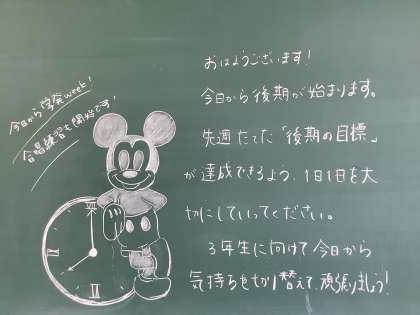 今日から学発week!
合唱練習も開始です!
おはようございます!
今日から後期が始まります。
先週たてた「後期の目標」
が達成できるよう、1日1日を大
切にしていってください。
3年生に向けて今日から
気持ちを切り替えて、頑張りましょう!
XII
III
VI
IX